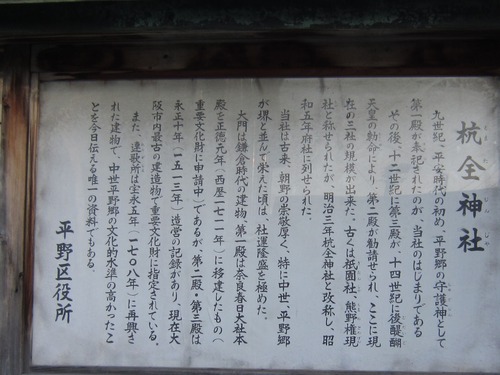 杭全神社
九世紀、平安時代の初め、平野郷の守護神として
第一殿が奉祀されたのが、当社のはじまりである
その後、十二世紀に第三殿が、十四世紀に後醍醐
天皇の勅命により、第二殿が勧請せられ、ここに現
在の三社の規模が出来た。古くは祇園社、熊野権現
社と称せられたが、明治三年杭全神社と改称し、昭
和五年府社に列せられた。
当社は古来、朝野の崇敬厚く、特に中世、平野郷
が堺と並んで栄えた頃は、社運隆盛を極めた。
大門は鎌倉時代の建物、第一殿は奈良春日大社本
殿を正徳元年（西暦一七一一年）に移建したもの（
重要文化財に申請中）であるが、第二殿・第三殿は
永正十年（一五一三年）造営の記録があり、現在大
阪市内最古の建造物で重要文化財に指定されている。
また、連歌所は宝永五年（一七〇八年）に再興さ
れた建物で、中世平野郷の文化的水準の高かったこ
とを今日伝える唯一の資料でもある。
平野区役所